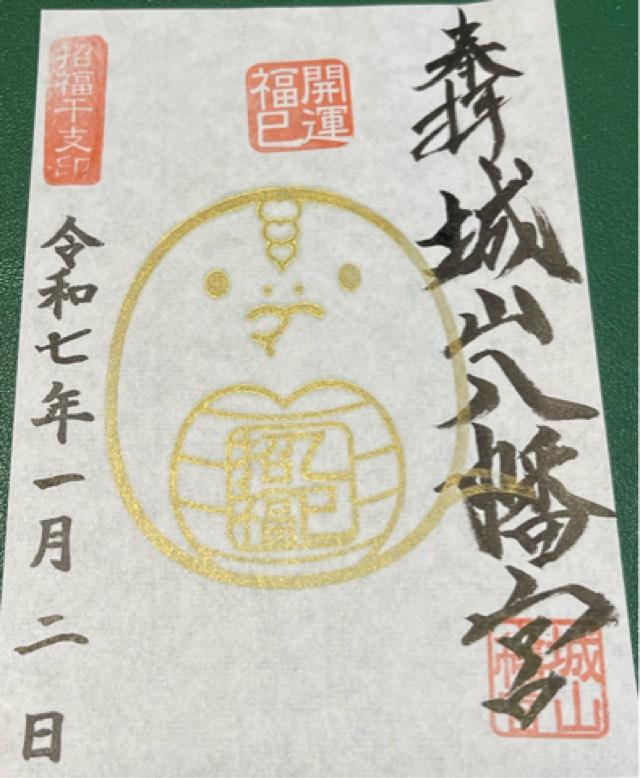 奉拝
城山八幡宮
開運
福巳
招福干支印
乙巳
招福
令和七年一月二日
城山